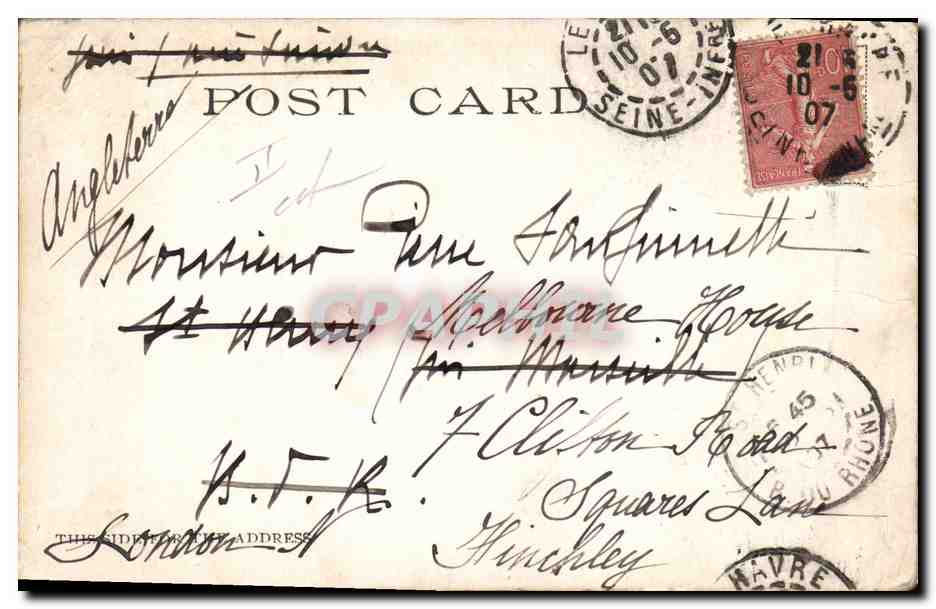 POST CARD
Angleterre
LE
21
10 -6
07
SEINE-INFRE
21
10 -6
07
Monsieur Pierre Sanguinetti
St Henry Melbourne House
près Marseille
7 Clifton Road
B. d. R.
Squares Lane
London N Finchley
THIS SIDE FOR THE ADDRESS
HENRI
45
DU RHONE
HAVRE
CPARAMA